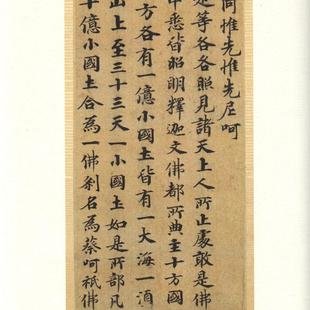 惟先惟先尼呵
是等各各照見諸天上人所止處敢是佛
中悉皆昭明釋迦文佛都所典主十方國
方各有一億小國土皆有一大海一須
山上至三十三天一小國土如是所部凡
十億小國土合為一佛剎名為蔡呵祇佛